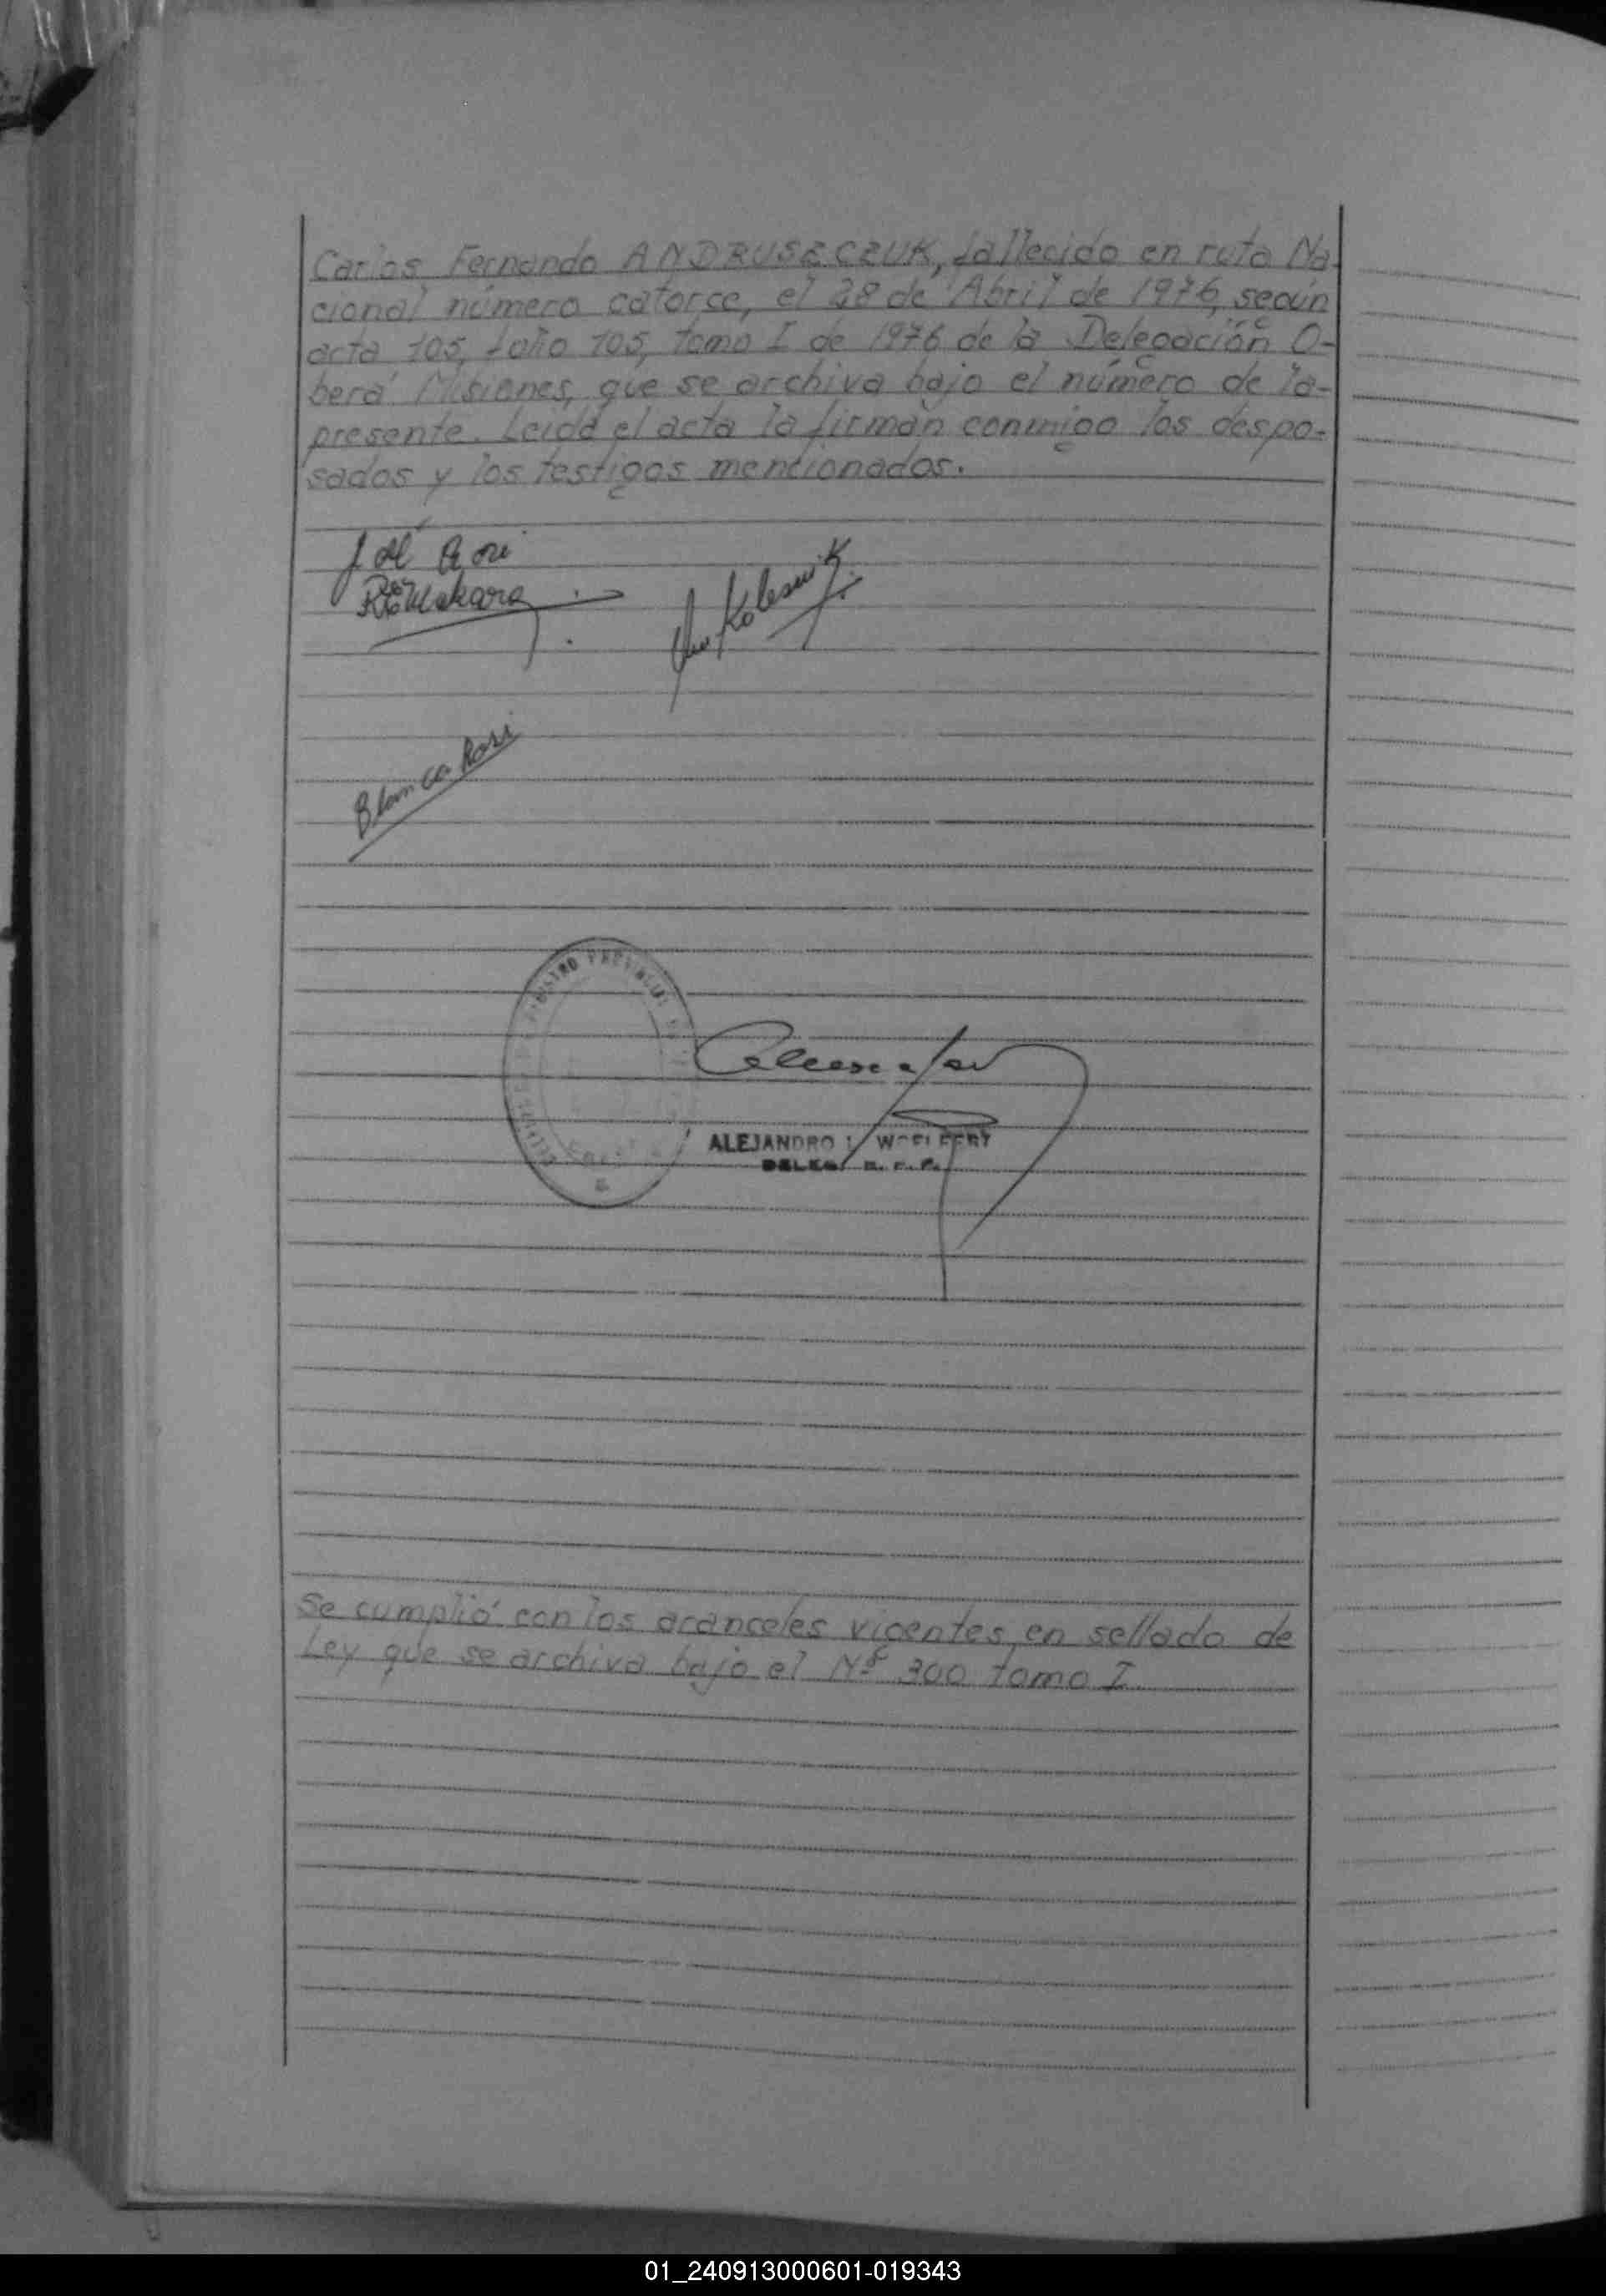 Carlos Fernando ANDRUSZCZUK, fallecido en ruta Na-
cional número catorce, el 28 de Abril de 1976, según
acta 105, folio 105, tomo I de 1976 de la Delegación O-
berá Misiones, que se archiva bajo el número de la-
presente. Leida el acta la firman conmigo los despo-
sados y los testigos mencionados.
Kolesnik
Blanca Rosi
REGISTRO PROVINCIAL
ALEJANDRO WOELFERT
Se cumplió con los aranceles vigentes, en sellado de
Ley que se archiva bajo el Nº 300 tomo I
01_240913000601-019343